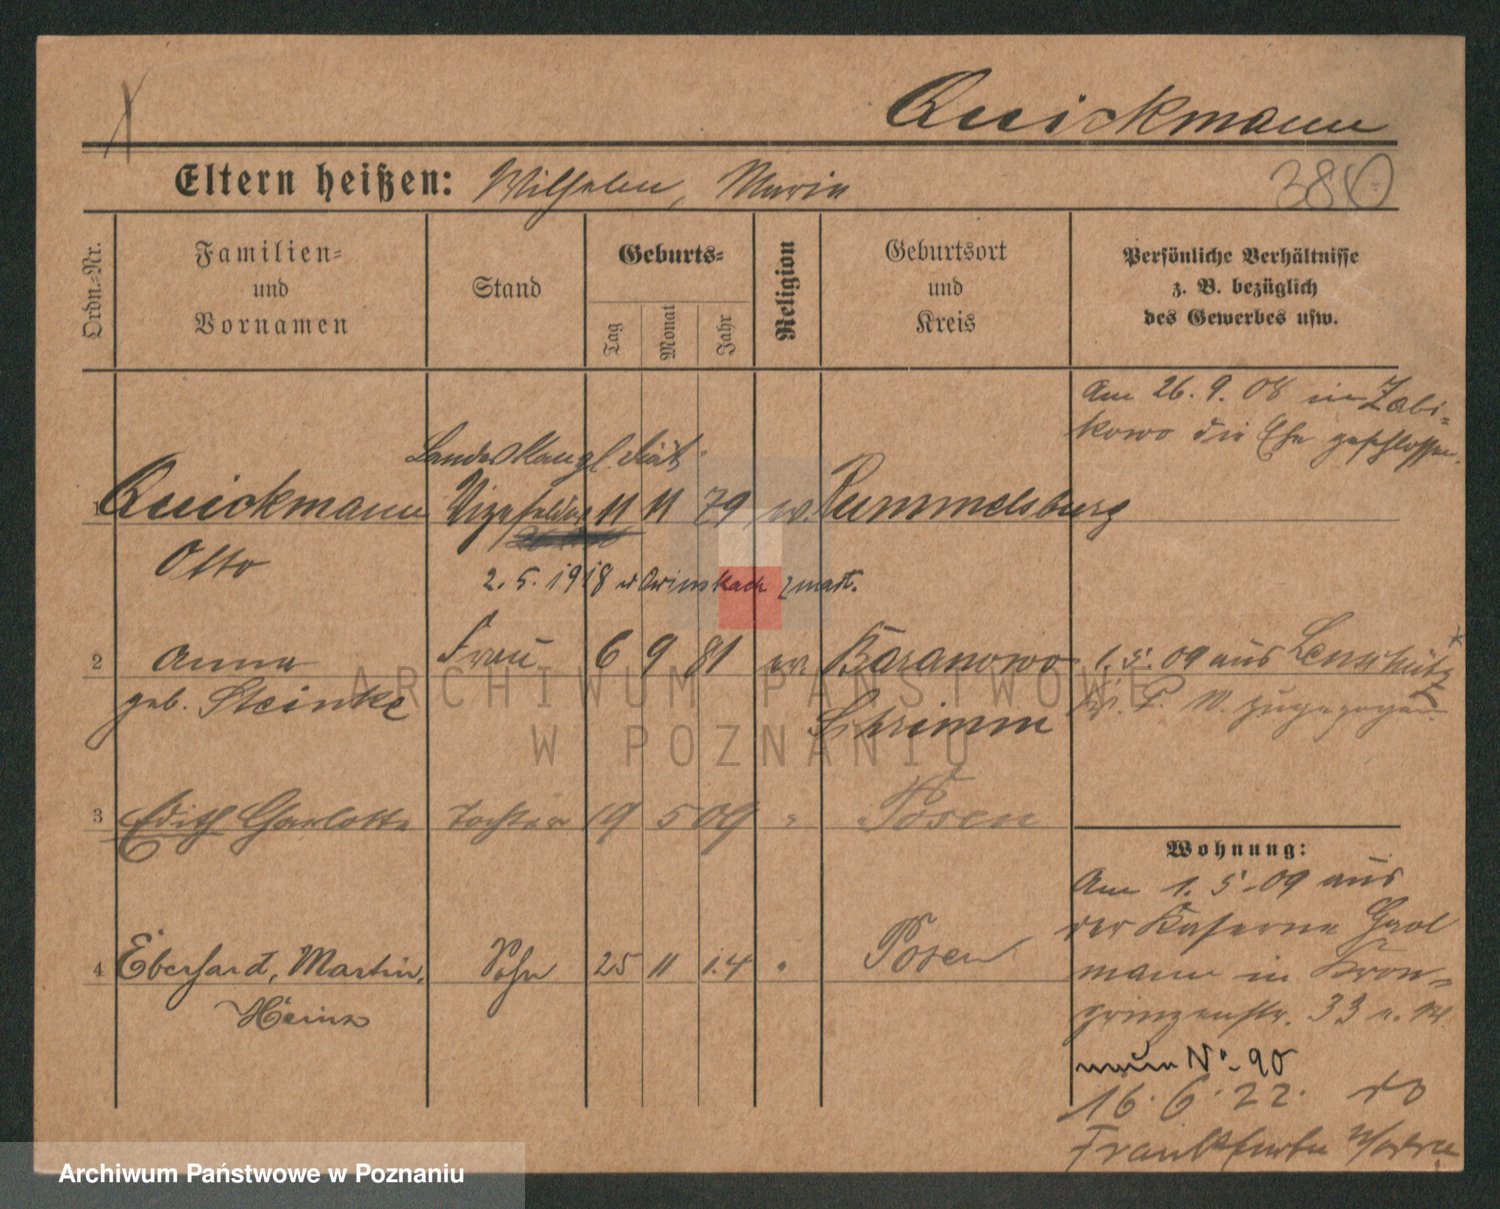 Quickmann
Eltern heißen: Wilhelm, Maria
380
Ordn.-Nr.
Familien-
und
Vornamen
Stand
Geburts-
Tag
Monat
Jahr
Religion
Geburtsort
und
Kreis
Persönliche Verhältnisse
z. B. bezüglich
des Gewerbes usw.
Am 26. 9. 08 in Zabi-
kowo die Ehe geschlossen.
1 Quickmann Vizefeldw. 11 11 79 ev. Rummelsburg
Otto
2. 5. 1918 zmarł.
2 Anna Frau 6 9 81 ev. Baranowo
geb. Steinke Schrimm
1. 5. 09 aus
zugezogen.
3 Edith Charlotte Tochter 19 5 09 " Posen
4 Eberhard, Martin, Sohn 25 11 14 " Posen
Heinz
Wohnung:
Am 1. 5. 09 aus
der Kaserne Grol
mann in Kron-
prinzenstr. 33 
neue No. 90
16. 6. 22. do
Frankfurtu
ARCHIWUM PAŃSTWOWE
W POZNANIU
Archiwum Państwowe w Poznaniu